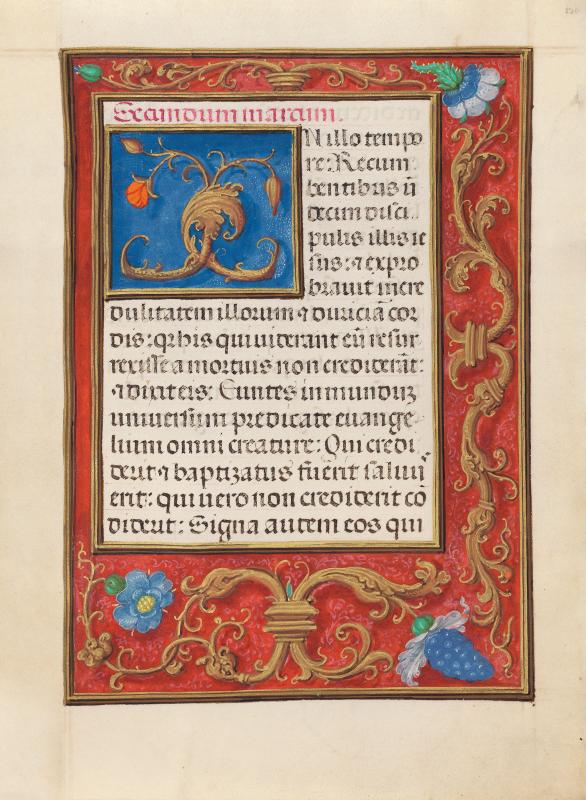 Secundum marcum.
IN illo tempo
re: Recum
bentibus ū
decim disci
pulis illis ie
sus: ⁊ expro
bravit incre
dulitatem illorum ⁊ duriciā cor
dis: q̄ his qui uiderant eū resur
rexisse a mortuis non crediderāt:
⁊ dixit eis: Euntes in mundū
universum predicate euange
lium omni creature: Qui credi
derit ⁊ baptizatus fuerit salvus
erit: qui uero non crediderit cō
dētur: Signa autem eos qui